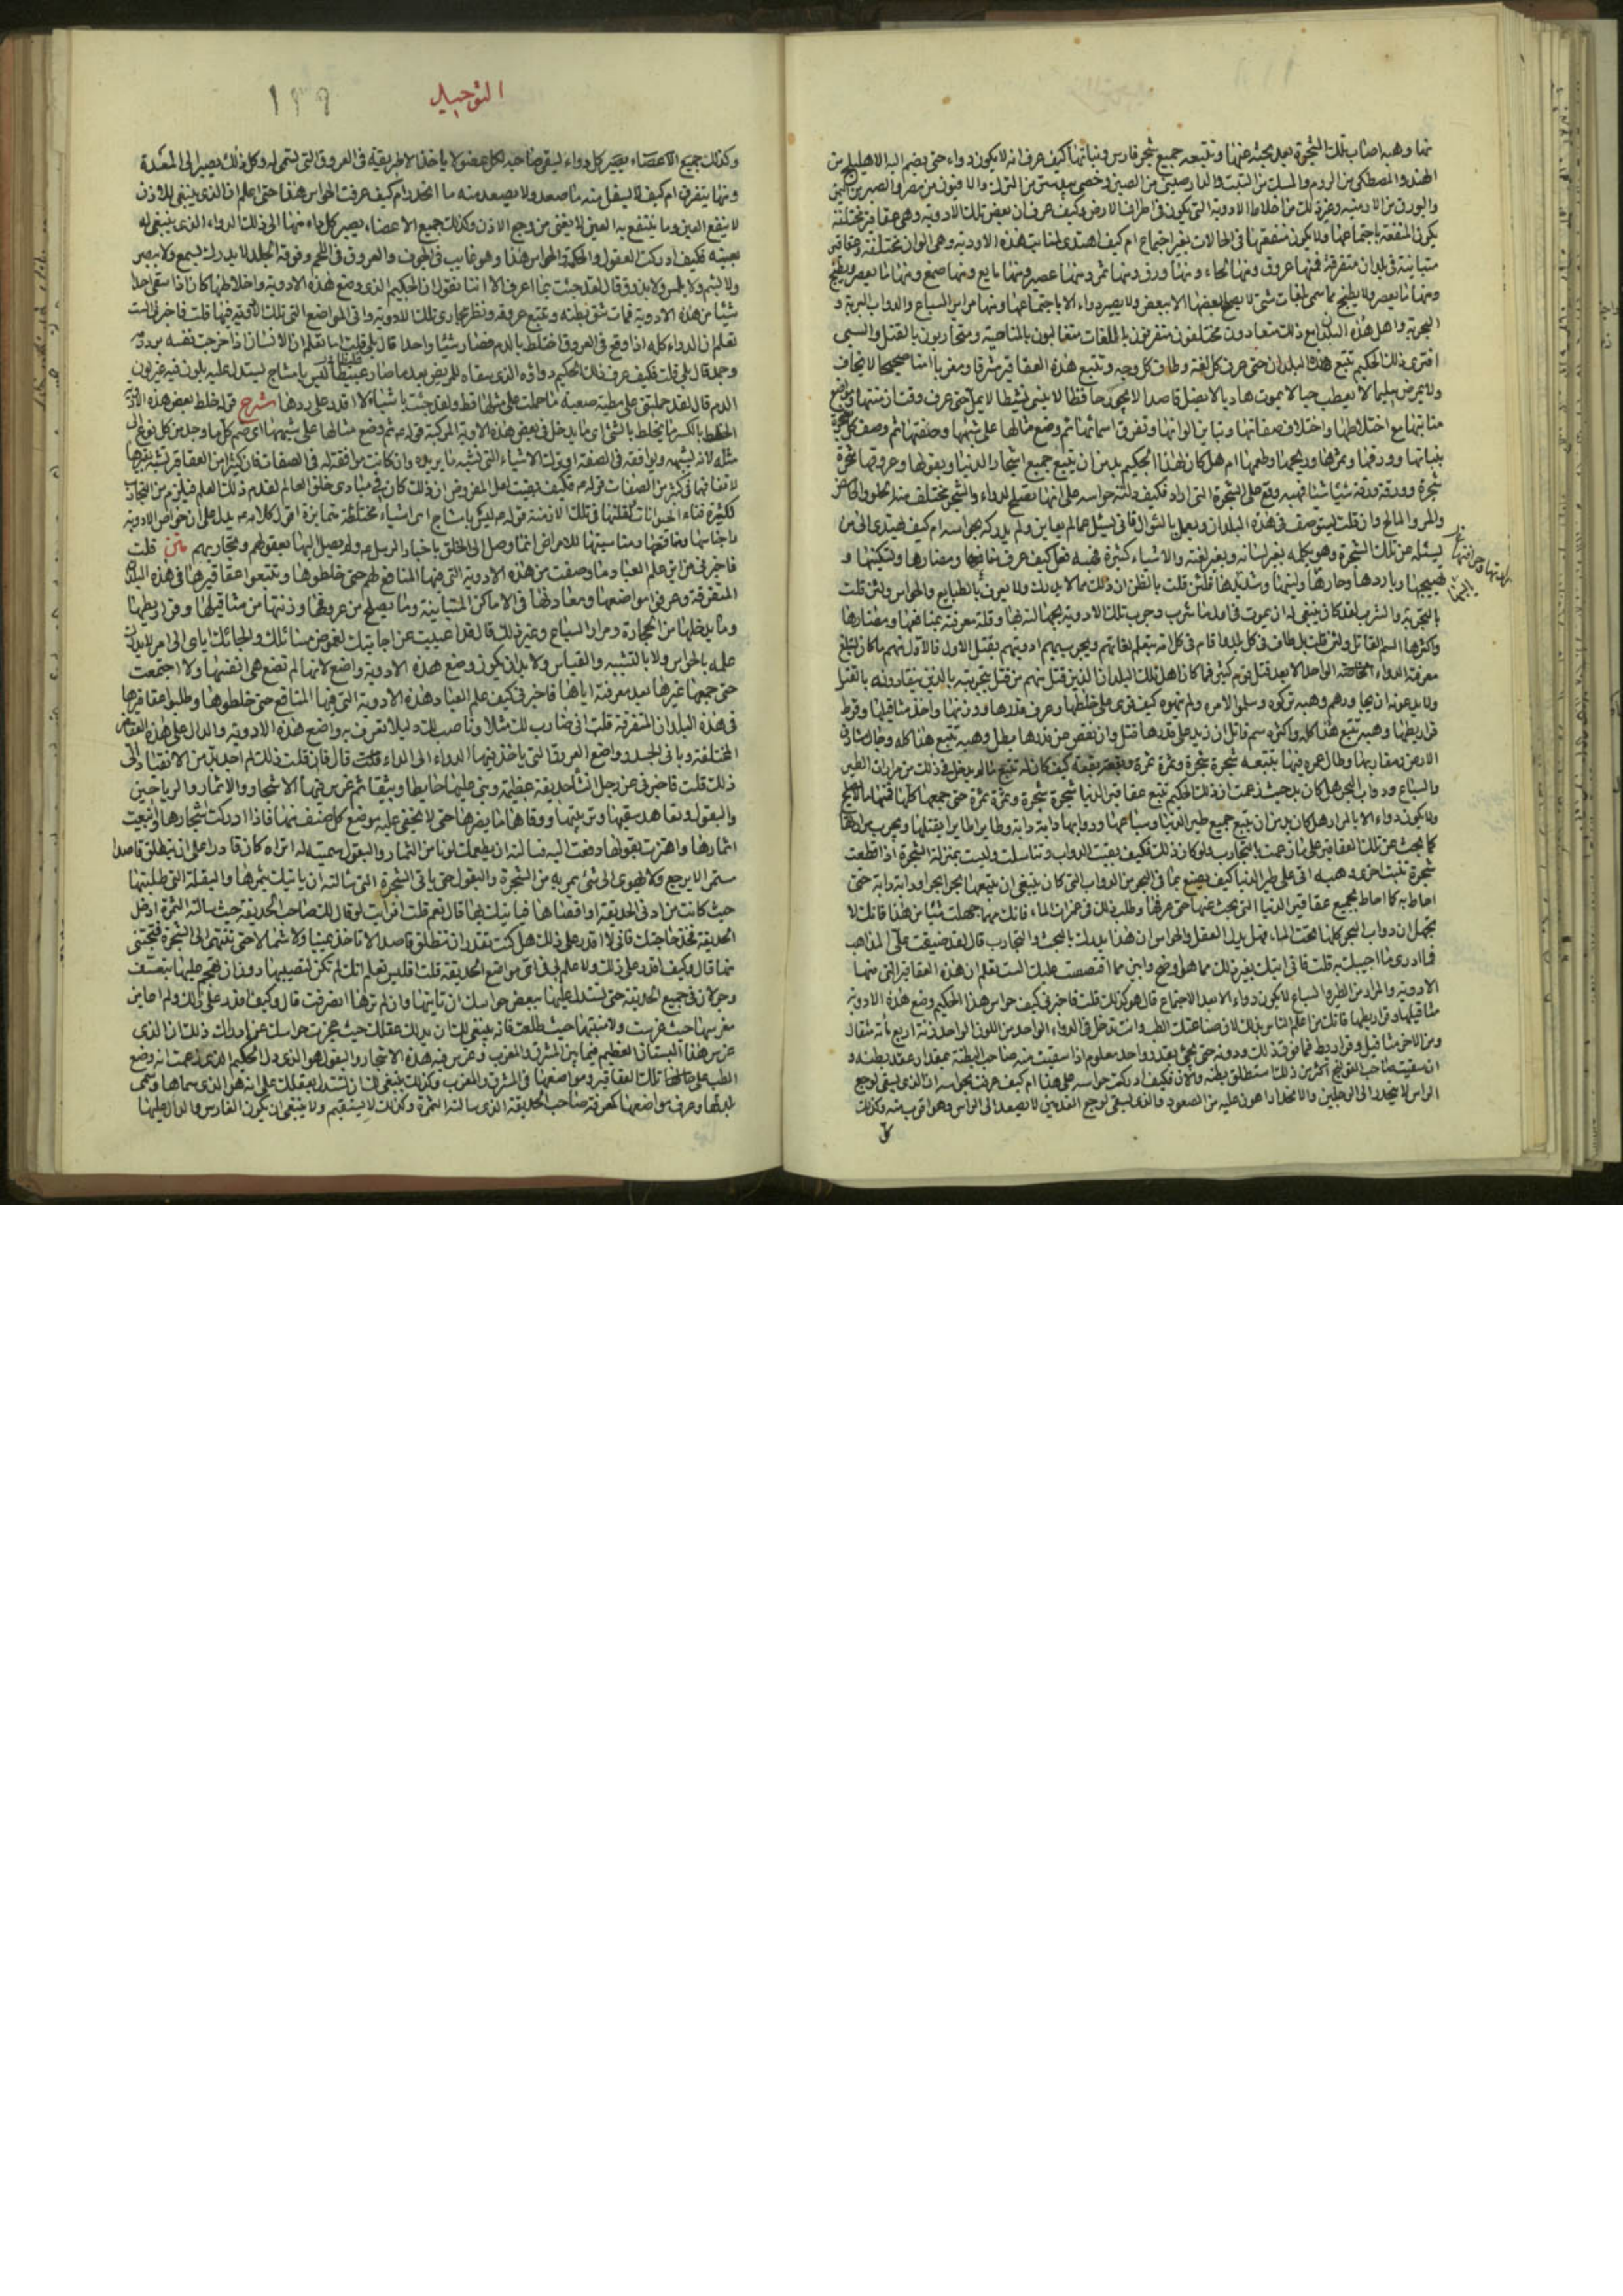 منها وهبه اصاب تلك الشجرة بعد بحثه عنها وتتبعه جميع شجر فارس ونباتها كيف عرف انه لا يكون دواء حتى يضم اليه الاهليلج من
الهند والمصطكى من الروم والمسك من التبت والدارصينى من الصين وخصى بيدستر من الترك والافيون من مصر والصبر من اليمن
والبورق من الارمنيه وغير ذلك من اخلاط الادوية التى يكون فى اطراف الارض وكيف عرف ان بعض تلك الادوية وهى عقاقير مختلفة
يكون المنفعة باجتماعها ولا يكون منفعتها فى الحالات بغير اجتماع ام كيف اهتدى لمنابت هذه الادوية وهى الوان مختلفة وعقاقير
متباينة فى بلدان متفرقة فمنها عروق ومنها لحاء ومنها ورق ومنها ثمر ومنها عصير ومنها مايع ومنها صمغ ومنها ما يعصر ويطبخ
ومنها ما يعصر ولا يطبخ مما سمى بلغات شتى لا يصلح بعضها الا ببعض ولا يصير دواء الا باجتماعها ومنها مراير السباع والدواب البرية و
البحرية واهل هذه البلدان مع ذلك متعادون مختلفون متفرقون باللغات متغالبون بالمناصبة ومتحاربون بالقتل والسبى
افترى ذلك الحكيم تتبع هذه البلدان حتى عرف كل لغة وطاف كل وجه وتتبع هذه العقاقير مشرقا ومغربا امنا صحيحا لا يخاف
ولا يمرض سليما لا يعطب حيا لا يموت هاديا لا يضل قاصدا لا يجور حافظا لا ينسى نشيطا لا يمل حتى عرف وقت ازمنتها ومواضع
منابتها مع اختلاطها واختلاف صفاتها وتباين الوانها وتفرق اسمائها ثم وضع مثالها على شبهها وصفتها ثم وصف كل شجرة
بنباتها وورقها وثمرها وريحها وطعمها ام هل كان لهذا الحكيم بد من ان يتبع جميع اشجار الدنيا وبقولها وعروقها شجرة
شجرة وورقة ورقة شيئا شيئا فهبه وقع على الشجرة التى اراد فكيف دلته حواسه على انها تصلح لدواء والشجر مختلف منه الحلو والحامض
والمر والمالح وان قلت يستوصف فى هذه البلدان ويعمل بالسؤال فانى يسئل عما لم يعاين ولم يدركه بحواسه ام كيف يهتدى الى من
يسئله عن تلك الشجرة وهو يكلمه بغير لسانه وبغير لغته والاشياء كثيرة فهبه فعل كيف عرف منافعها ومضارها وتسكينها و
تهييجها وباردها وحارها ولينها وشديدها فلئن قلت بالظن ان ذلك مما لا يدرك ولا يعرف بالطبايع والحواس ولئن قلت
بالتجربة والشرب لقد كان ينبغى له ان يموت فى اول ما شرب وجرب تلك الادوية بجهالته لها وقلة معرفته بمنافعها ومضارها
واكثرها السم القاتل ولئن قلت بل طاف فى كل بلد واقام فى كل امة يتعلم لغاتهم ويجرب بهم ادويتهم يقتل الاول فالاول منهم ما كان لتبلغ
معرفته الدواء الواحد الا بعد قتل قوم كثير فما كان اهل تلك البلدان الذين قتل منهم من قتل بتجربته بالذين ينقادونه بالقتل
ولا يدعونه ان يجاورهم وهبه تركوه وسلموا لامره ولم ينهوه كيف قوى على خلطها وعرف قدرها ووزنها واخذ مثاقيلها وقرط
قراريطها وهبه تتبع هذا كله واكثره سم قاتل ان زيد على قدرها قتل وان نقص عن قدرها بطل وهبه تتبع هذا كله وجال مشارق
الارض ومغاربها وطال عمره فيها بتتبعه شجرة شجرة وبقعة بقعة كيف كان له تتبع ما لم يدخل فى ذلك من مرارة الطير
والسباع ودواب البحر هل كان بد حيث زعمت ان ذلك الحكيم تتبع عقاقير الدنيا شجرة شجرة وثمرة ثمرة حتى جمعها كلها فمنها ما لا يصلح
ولا يكون دواء الا بالمرار هل كان بد من ان يتبع جميع طير الدنيا وسباعها ودوابها دابة دابة وطايرا طايرا يقتلها ويجرب مرارها
كما بحث عن تلك العقاقير على ما زعمت بالتجارب ولو كان ذلك فكيف بقيت الدواب وتناسلت وليست بمنزلة الشجرة اذا قطعت
شجرة نبتت اخرى وهبه اتى على طير الدنيا كيف يصنع بما فى البحر من الدواب التى كان ينبغى ان يتبعها بحرا بحرا ودابة دابة حتى
احاط به كما احاط بجميع عقاقير الدنيا التى بحث عنها حتى عرفها وطلب ذلك فى غمرات الماء فانك مهما جهلت شيئا من هذا فانك لا
تجهل ان دواب البحر كلها تحت الماء فهل يدل العقل والحواس ان هذا يدرك بالبحث والتجارب قال لقد ضيقت على المذاهب
فما ادرى ما اجيبك به قلت فانى اتيك بغير ذلك مما هو اوضح وابين مما اقتصصت عليك الست تعلم ان هذه العقاقير التى منها
الادوية والمرار من الطير والسباع لا يكون دواء الا بعد الاجتماع قال هو كذلك قلت فاخبرنى كيف حواس هذا الحكيم وضع هذه الادوية
مثاقيلها وقراريطها فانك من اعلم الناس بذلك لان صناعتك الطب وانت تدخل فى الدواء الواحد من اللون الواحد زنة اربع مائة مثقال
ومن الاخر مثاقيل وقراريط فما فوق ذلك ودونه حتى يجئ بقدر واحد معلوم اذا سقيت منه صاحب البطنة بمقدار عقد بطنه و
ان سقيت صاحب القولنج اكثر من ذلك استطلق بطنه والان فكيف ادركت حواسه على هذا ام كيف عرفت بحواسه ان الذى يسقى لوجع
الراس لا ينحدر الى الرجلين والانحدار اهون عليه من الصعود والذى يسقى لوجع القدمين لا يصعد الى الراس وهو اقرب منه وكذلك
التوحيد
١٣٩
وكذلك جميع الاعضاء يصير كل دواء ليسقى صاحبه لكل عضو لا ياخذ الا طريقه فى العروق التى تسقى له وكل ذلك يصير الى المعدة
ومنها يتفرق ام كيف لا يسفل منه ما صعد ولا يصعد منه ما انحدر ام كيف عرفت الحواس هذا حتى علم ان الذى ينبغى للاذن
لا ينفع العين وما ينتفع به العين لا يغنى من وجع الاذن وكذلك جميع الاعضاء يصير كل داء منها الى ذلك الدواء الذى ينبغى له
بعينه فكيف ادركت العقول والحكمة والحواس هذا وهو غايب فى الجوف والعروق فى اللحم وفوقه الجلد لا يدرك بسمع ولا ببصر
ولا بشم ولا بلمس ولا بذوق قال لقد جئت بما اعرف الا اننا نقول ان الحكيم الذى وضع هذه الادوية واخلاطها كان اذا سقى احدا
شيئا من هذه الادوية فمات شق بطنه وتتبع عروقه ونظر مجارى تلك الادوية واتى المواضع التى تلك الادوية فيها قلت فاخبرنى الست
تعلم ان الدواء كله اذا وقع فى العروق اختلط بالدم فصار شيئا واحدا قال بلى قلت اما تعلم ان الانسان اذا خرجت نفسه برد دمه
وجمد قال بلى قلت فكيف عرف ذلك الحكيم دواؤه الذى سقاه للمريض بعد ما صار عبيطا ليس بامشاج يستدل عليه بلون فيه غير لون
الدم قال لقد حملتنى على مطية صعبة ما حملت على مثلها قط ولقد جئت باشياء لا اقدر على ردها شرح
مثله لانه يشبهه ويوافقه فى الصفة او يترك الاشياء التى تشبه ما يريده وان كانت موافقة له فى الصفات فان كثيرا من العقاقير تشبه بغيرها
متن قلت
فاخبرنى من اين علم العباد ما وصفت من هذه الادوية التى فيها المنافع لهم حتى خلطوها وتتبعوا عقاقيرها فى هذه البلدان
المتفرقة وعرفوا مواضعها ومعادنها فى الاماكن المتباينة وما يصلح من عروقها وزنتها من مثاقيلها وقراريطها
وما يدخلها من الحجارة ومرار السباع وغير ذلك قال لقد اعييت عن اجابتك لغموض مسائلك والجائك اياى الى امر لا يدرك
علمه بالحواس ولا بالتشبيه والقياس ولا بد ان يكون وضع هذه الادوية واضع لانها لم تضع هى انفسها ولا اجتمعت
حتى جمعها غيرها بعد معرفته اياها فاخبرنى كيف علم العباد هذه الادوية التى فيها المنافع حتى خلطوها وطلبوا عقاقيرها
فى هذه البلدان المتفرقة قلت انى ضارب لك مثلا وناصب لك دليلا تعرف به واضع هذه الادوية والدال على هذه العقاقير
المختلفة وبانى الجسد وواضع العروق التى ياخذ فيها الدواء الى الداء قال فان قلت ذلك لم اجد بدا من الانقياد الى
ذلك قلت فاخبرنى عن رجل انشا حديقة عظيمة وبنى عليها حايطا وثيقا ثم غرس فيها الاشجار والاثمار والرياحين
والبقول وتعاهد سقيها وتربيتها ووقاها ما يضرها حتى لا يخفى عليه موضع كل صنف منها فاذا ادركت اشجارها واينعت
اثمارها واهتزت بقولها دفعت اليه فسالته ان يطعمك لونا من الثمار والبقول سميته له اتراه كان قادرا على ان ينطلق قاصدا
مستمرا لا يرجع ولا يهوى الى شئ يمر به من الشجرة والبقول حتى ياتى الشجرة التى سالته ان ياتيك بثمرها والبقلة التى طلبتها
حيث كانت من ادنى الحديقة او اقصاها فياتيك بها قال نعم قلت افرايت لو قال لك صاحب الحديقة حيث سالته الثمرة ادخل
الحديقة فخذ حاجتك فانى لا اقدر على ذلك هل كنت تقدر ان تنطلق قاصدا لا تاخذ يمينا ولا شمالا حتى تنتهى الى الشجرة فتجتنى
منها قال وكيف اقدر على ذلك ولا علم لى فى اى مواضع الحديقة قلت افليس تعلم انك لم تكن لتصيبها دون ان تهجم عليها بتعسف
وجولان فى جميع الحديقة حتى تستدل عليها ببعض حواسك ان تاتيها وان لم ترها انصرفت قال وكيف اقدر على ذلك ولم اعاين
مغرسها حيث غرست ولا منبتها حيث طلعت فانه ينبغى لك ان يدلك عقلك حيث عجزت حواسك عن ادراك ذلك ان الذى
غرس هذا البستان العظيم فيما بين المشرق والمغرب وغرس فيه هذه الاشجار والبقول هو الذى دل الحكيم الذى زعمت انه وضع
الطب على تلك العقاقير ومواضعها فى المشرق والمغرب وكذلك ينبغى لك ان تستدل بعقلك على انه هو الذى سماها وسمى
بلدتها وعرف مواضعها كمعرفة صاحب الحديقة الذى سالته الثمرة وكذلك لا يستقيم ولا ينبغى ان يكون الغارس والدال عليها